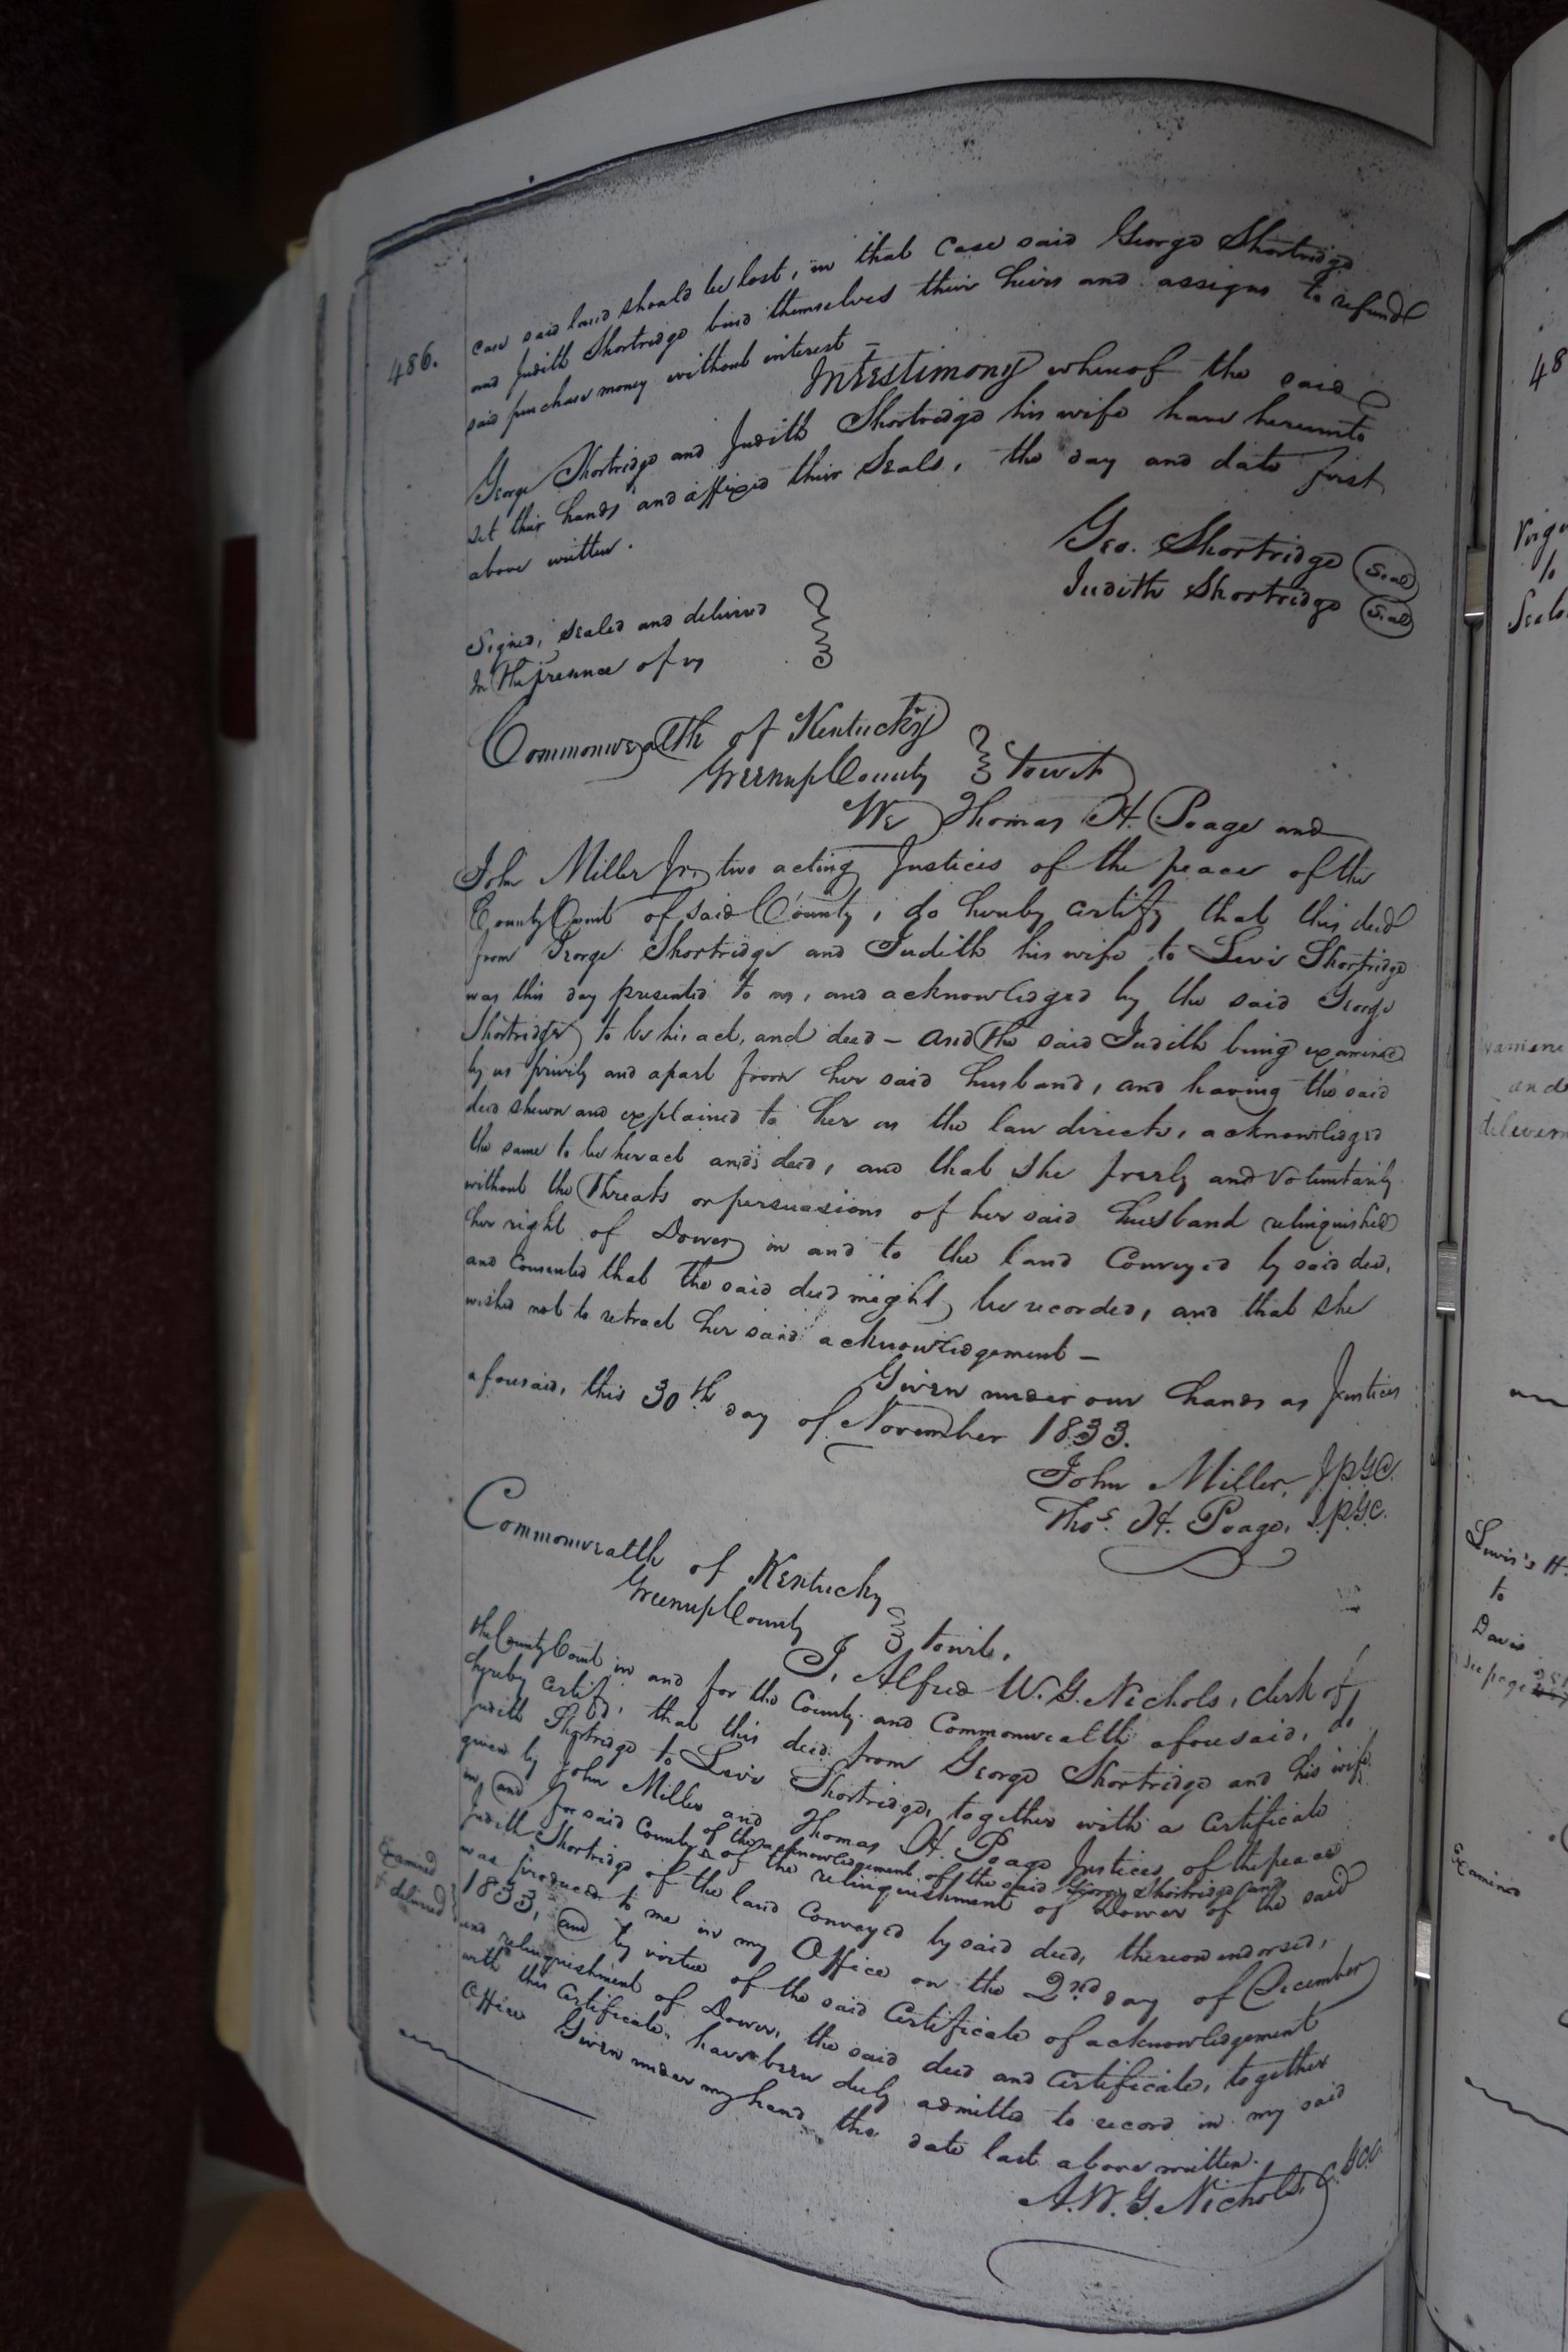 486.
case said land should be lost, in that case said George Shortridge
and Judith Shortridge bind themselves their heirs and assigns to refund
said purchase money without interest –
In Testimony whereof the said
George Shortridge and Judith Shortridge his wife have hereunto
set their hands and affixed their Seals, the day and date first
above written.
Geo. Shortridge (Seal)
Judith Shortridge (Seal)
Signed, Sealed and delivered
In the presence of us
Commonwealth of Kentucky
Greenup County towit
We Thomas H. Poage and
John Miller Jr, two acting Justices of the peace of the
County Court of said County, do hereby certify that this deed
from George Shortridge and Judith his wife to Levi Shortridge
was this day presented to us, and acknowledged by the said George
Shortridge to be his act, and deed – And the said Judith being examined
by us privily and apart from her said husband, and having the said
deed shewn and explained to her as the law directs, acknowledged
the same to be her act and deed, and that she freely and voluntarily
without the Threats or persuasions of her said husband relinquished
her right of Dower in and to the land Conveyed by said deed,
and Consented that the said deed might be recorded, and that she
wished not to retract her said acknowledgement –
Given under our hands as Justices
aforesaid, this 30th day of November 1833.
John Miller, J.P.G.C.
Thos. H. Poage, J.P.G.C.
Commonwealth of Kentucky
Greenup County towit,
I, Alfred W. G. Nichols, clerk of
the County Court in and for the County and Commonwealth aforesaid, do
hereby certify, that this deed from George Shortridge and his wife
Judith Shortridge to Levi Shortridge, together with a Certificate
given by John Miller and Thomas H. Poage Justices of the peace
of the acknowledgement of the said George Shortridge and
in and for said County & of the relinquishment of Dower of the said
Judith Shortridge of the land Conveyed by said deed, thereon endorsed,
was produced to me in my Office on the 2nd day of December
1833, and by virtue of the said Certificate of acknowledgement
and relinquishment of Dower, the said deed and Certificate, together
with this Certificate, have been duly admitted to record in my said
Office Given under my hand the date last above written.
A. W. G. Nichols, C.G.C.C.
Examined
& delivered
48
and
Lewis's H.
to
Davis
see page
Examined